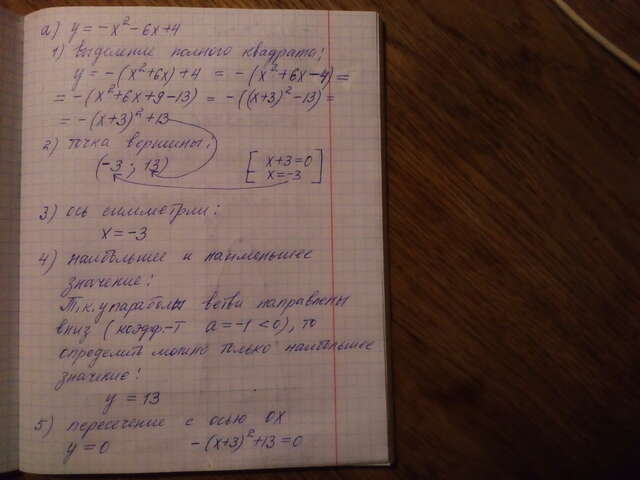 а) y = -x² - 6x + 4
1) выделение полного квадрата:
y = -(x² + 6x) + 4 = -(x² + 6x - 4) =
= -(x² + 6x + 9 - 13) = -((x+3)² - 13) =
= -(x+3)² + 13
2) точка вершины:
(-3 ; 13) [ x+3=0
x=-3 ]
3) ось симметрии:
x = -3
4) наибольшее и наименьшее
значение:
Т.к. у параболы ветви направлены
вниз (коэфф.-т a = -1 < 0), то
определить можно только наибольшее
значение:
y = 13
5) пересечение с осью OX
y = 0 -(x+3)² + 13 = 0